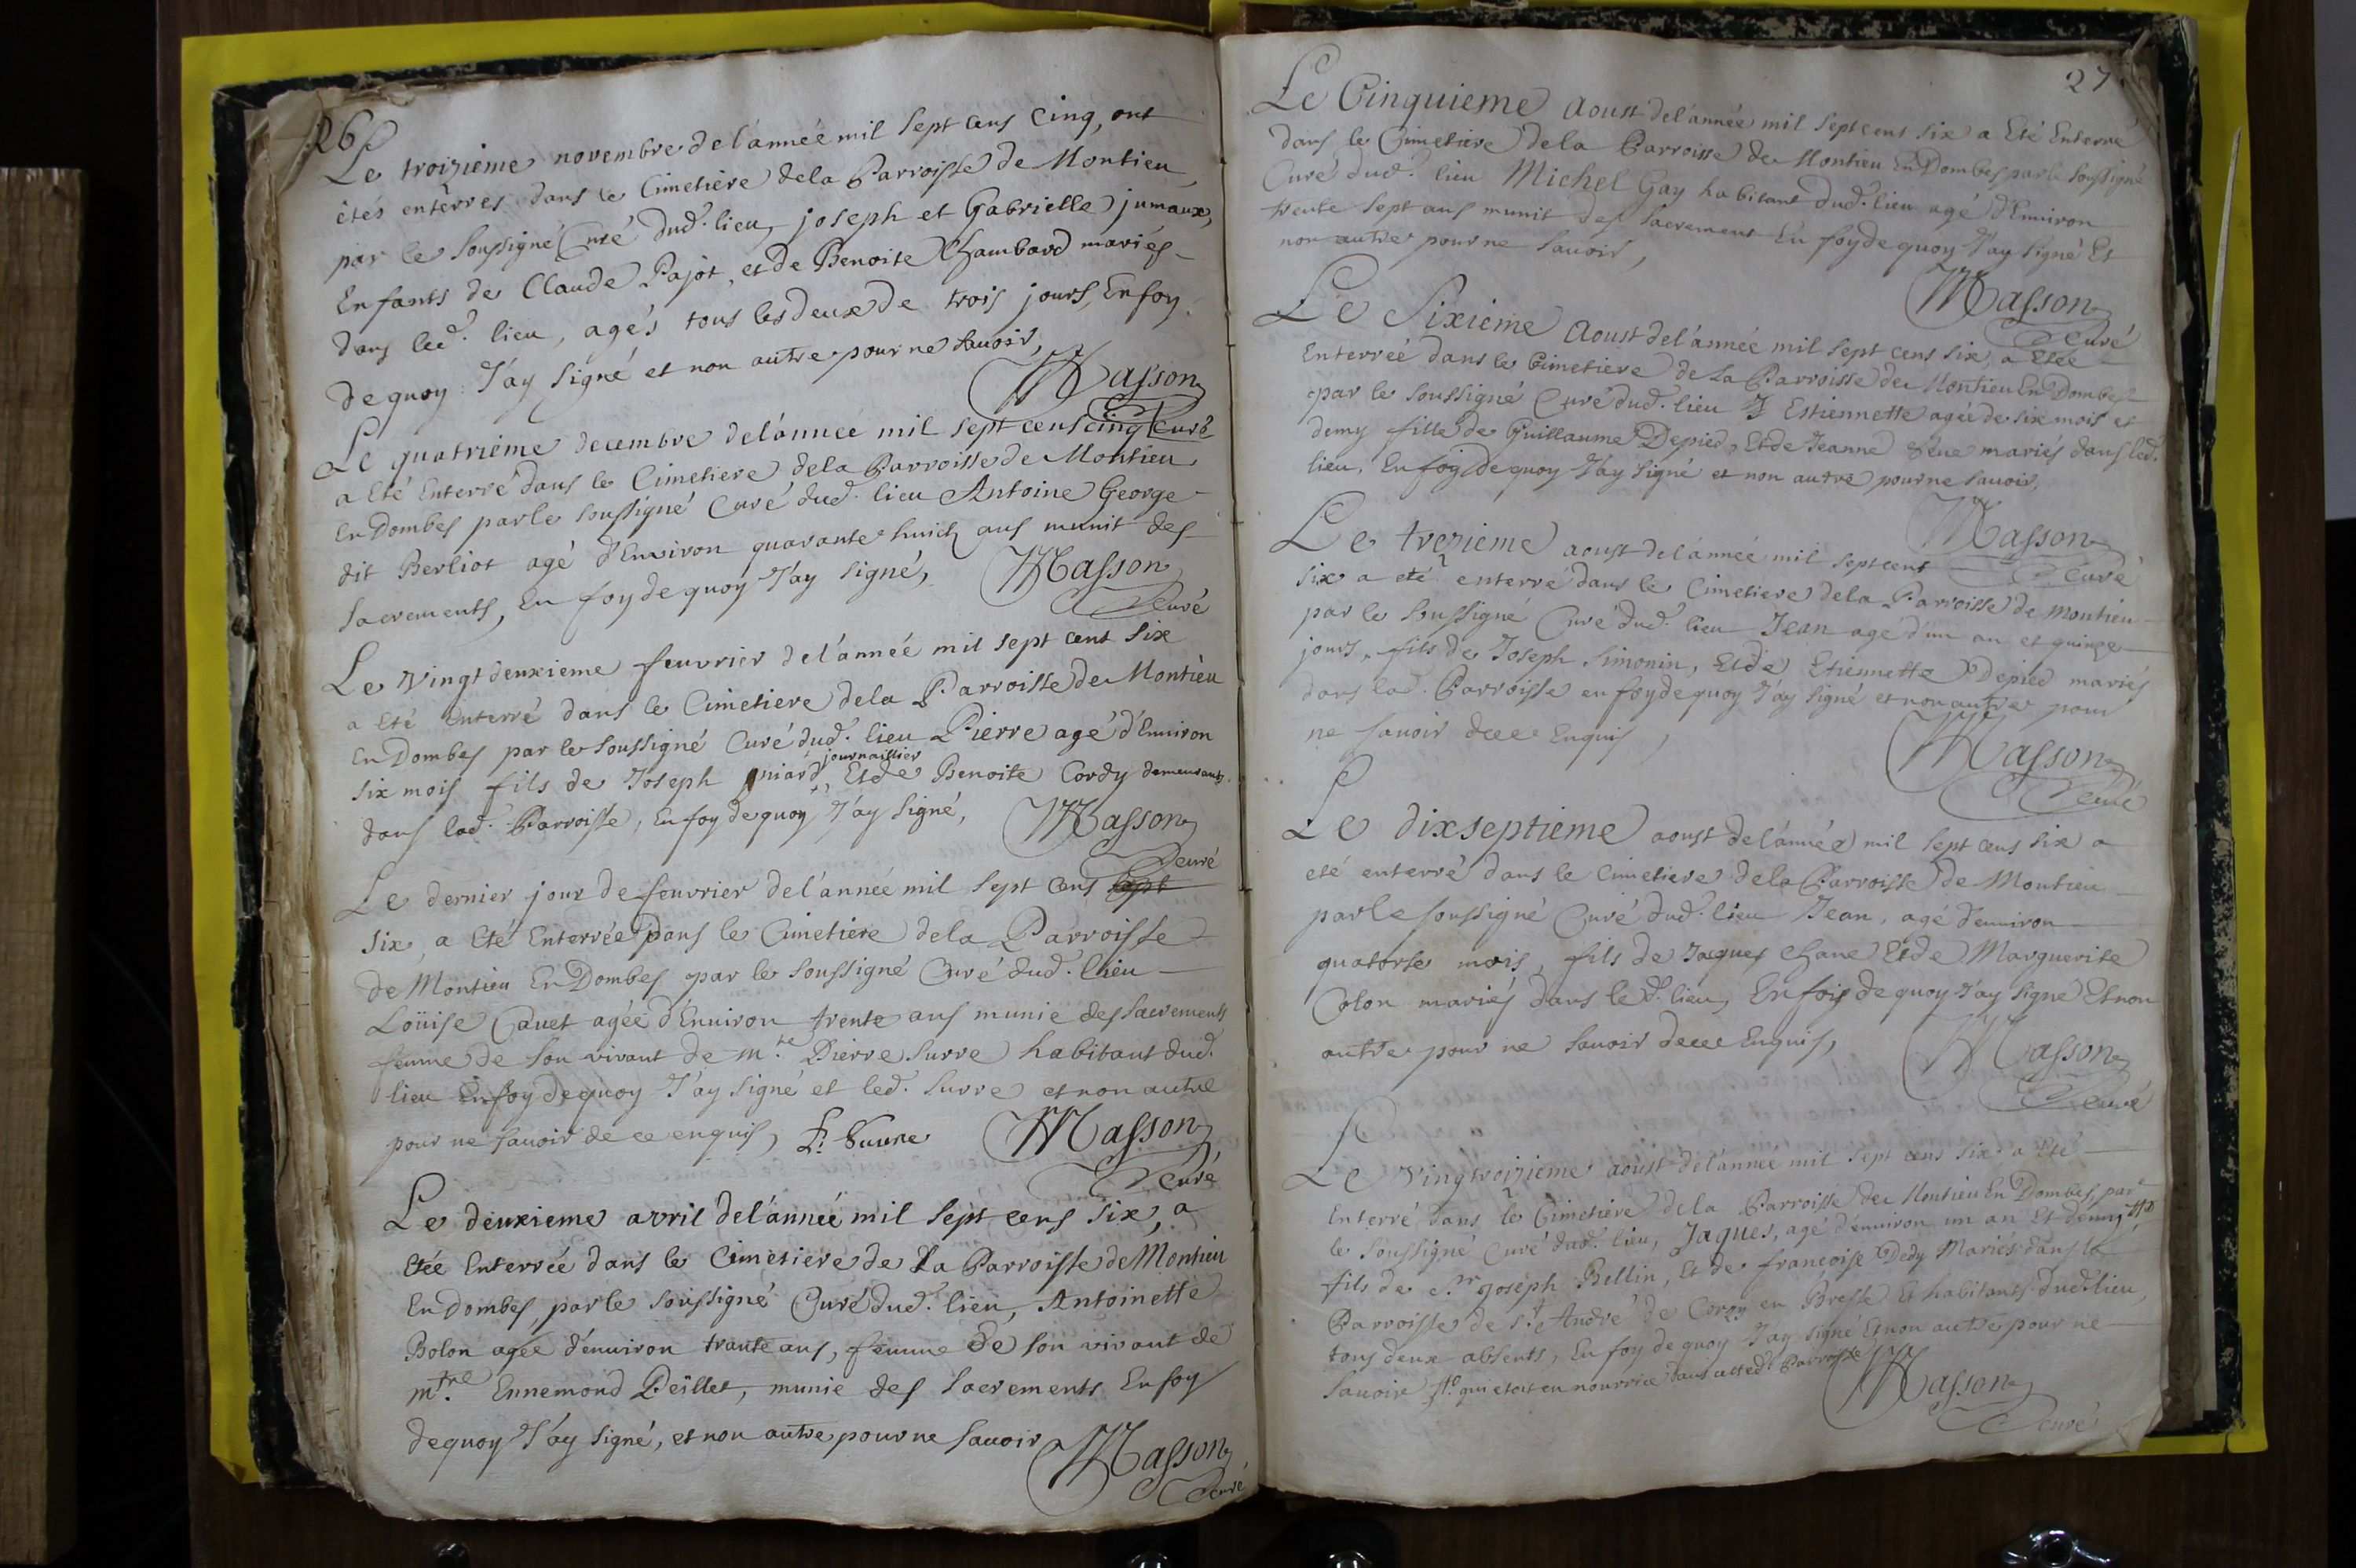 26
Le troizième novembre de l'année mil sept cens cinq, ont
étés enterres dans le Cimetière dela Parroisse de Montieu
par le soussigné Curé dud. lieu, joseph et Gabrielle jumaux,
Enfants de Claude Pajot, et de Benoite Chambard mariés
dans led. lieu, agés tous les deux de trois jours, En foy
de quoy J'ay signé et non autre pour ne savoir,
Masson
Curé
Le quatrième decembre del'année mil sept cens cinq
a Eté Enterré dans le Cimetiere dela Parroisse de Montieu
En Dombes par le soussigné Curé dud. lieu Antoine George
dit Berliot agé d'Environ quarante huich ans munit des
Sacrements, En foy de quoy J'ay signé,
Masson
Curé
Le Vingt deuxieme feuvrier del'année mil sept cent six
a Eté Enterré dans le Cimetiere dela Parroisse de Montieu
En Dombes par le soussigné Curé dud. lieu Pierre agé d'Environ
journaillier
six mois fils de Joseph , Et de Benoite Cordy demeurants
dans lad. Parroisse, En foy de quoy J'ay signé,
Masson
Curé
Le dernier jour de feuvrier del'année mil sept cens sept
six, a Eté Enterrée dans le Cimetiere dela Parroisse
de Montieu En Dombes par le soussigné Curé dud. lieu
Loüise Cavet agée d'Environ trente ans munie des sacrements
femme de son vivant de m.re Pierre Surre habitant dud.
lieu En foy de quoy J'ay signé et led. Surre et non autre
pour ne savoir de ce enquis,
Masson
Curé
Le deuxieme avril del'année mil sept cens six, a
Etée Enterrée dans le Cimetiere de La Parroisse de Montieu
En dombes, par le soussigné Curé dud. lieu, Antoinette
Bolon agée d'environ trante ans, femme de son vivant de
m.tre Ennemond Peillet, munie des sacrements En foy
de quoy J'ay signé, et non autre pour ne savoir
Masson
Curé
27
Le Cinquieme Aoust del'année mil sept cent six a Eté Enterré
dans le Cimetiere dela Parroisse de Montieu En Dombes par le soussigné
Curé dud. lieu Michel Gay habitant dud. lieu agé d'Environ
trente sept ans munit des sacrement En foy de quoy J'ay signé Et
non autre pour ne savoir,
Masson
Curé
Le Sixieme Aoust del'année mil sept cens six, a Etée
Enterrée dans le Cimetiere de La Parroisse de Montieu En Dombes
par le soussigné Curé dud. lieu Estiennette agée de six mois et
demy fille de Guillaume Depied, Et de Jeanne mariés dans led.
lieu, En foy de quoy J'ay signé et non autre pour ne savoir,
Masson
Curé
Le trezieme aoust del'année mil sept cent
six a eté enterré dans le Cimetiere dela Parroisse de Montieu
par le soussigné Curé dud. lieu Jean agé d'un an et quinze
jours, fils de Joseph Simonin, Et de Etiennette Depied mariés
dans lad. Parroisse en foy de quoy J'ay signé et non autre pour
ne savoir de ce Enquis,
Masson
Curé
Le dixseptieme aoust del'année mil sept cens six a
eté enterré dans le Cimetiere dela Parroisse de Montieu
par le soussigné Curé dud. lieu Jean, agé d'environ
quatorse mois, fils de Jaques Et de Marguerite
Colon mariés dans led. lieu, En fois de quoy J'ay signé Et non
autre pour ne savoir de ce Enquis,
Masson
Curé
Le Vingtroizieme aoust del'année mil sept cens six a Eté
Enterré dans le Cimetiere dela Parroisse de Montieu En Dombes, par
le soussigné Curé dud. lieu, Jaques, agé d'environ un an Et demy
fils de Sr. joseph Bellin, Et de françoise Dedy Mariés dans la
Parroisse de St. André de Corzy en Bresse Et habitants dud. lieu,
tous deux absents, En foy de quoy J'ay signé Et non autre pour ne
savoir qui etoit en nourrice dans Parroisse
Masson
Curé